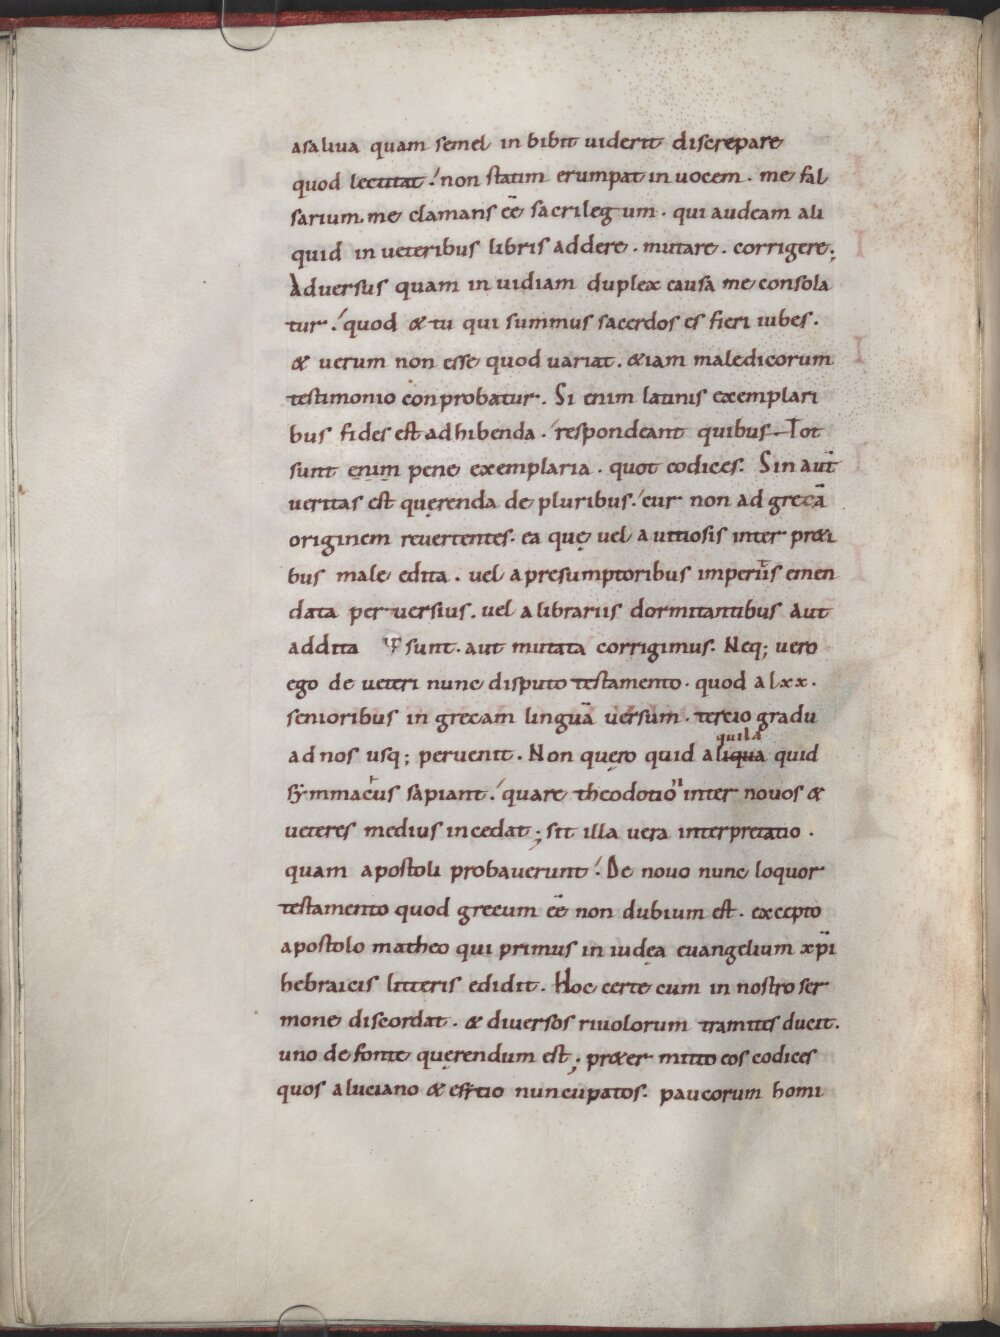 asaliua quam semel in bibit uiderit discrepare
quod lectitat . non statim erumpat in uocem . me fal
sarium . me clamans ee̅ sacrilegum . qui audeam ali
quid in ueteribus libris addere . mutare . corrigere;
Aduersus quam inuidiam duplex causa me consola
tur . quod & tu qui summus sacerdos es fieri iubes .
& uerum non esse quod uariat . &iam maledicorum
testimonio conprobatur . Si enim latinis exemplari
bus fides est adhibenda . respondeant quibus . Tot
sunt enim pene exemplaria . quot codices . Sin aut̅
ueritas est quęrenda de pluribus . cur non ad grecā
originem reuertentes . ea quę uel a uitiosis inter pr&i
bus male edita . uel a presumptoribus imperitis emen
data peruersius . uel a librariis dormitantibus aut
addita sunt . aut mutata corrigimus . Neq; uero
ego de ueteri nunc disputo testamento . quod a lxx .
senioribus in grecam linguā uersum . tercio gradu
ad nos usq; peruenit . Non quęro quid aliqua quila quid
symmacus sapiant . quare theodotion inter nouos &
ueteres medius incedat ; sit illa uera interpretatio .
quam apostoli probauerunt . De nouo nunc loquor
testamento quod grecum ee̅ non dubium est . excepto
apostolo matheo qui primus in iudęa euangelium xp̅i
hebraicis litteris edidit . Hoc certe cum in nostro ser
mone discordat . & diuersos riuolorum tramites ducit .
uno de fonte quęrendum est ; pr&er mitto eos codices
quos a luciano & esitio nuncupatos . paucorum homi